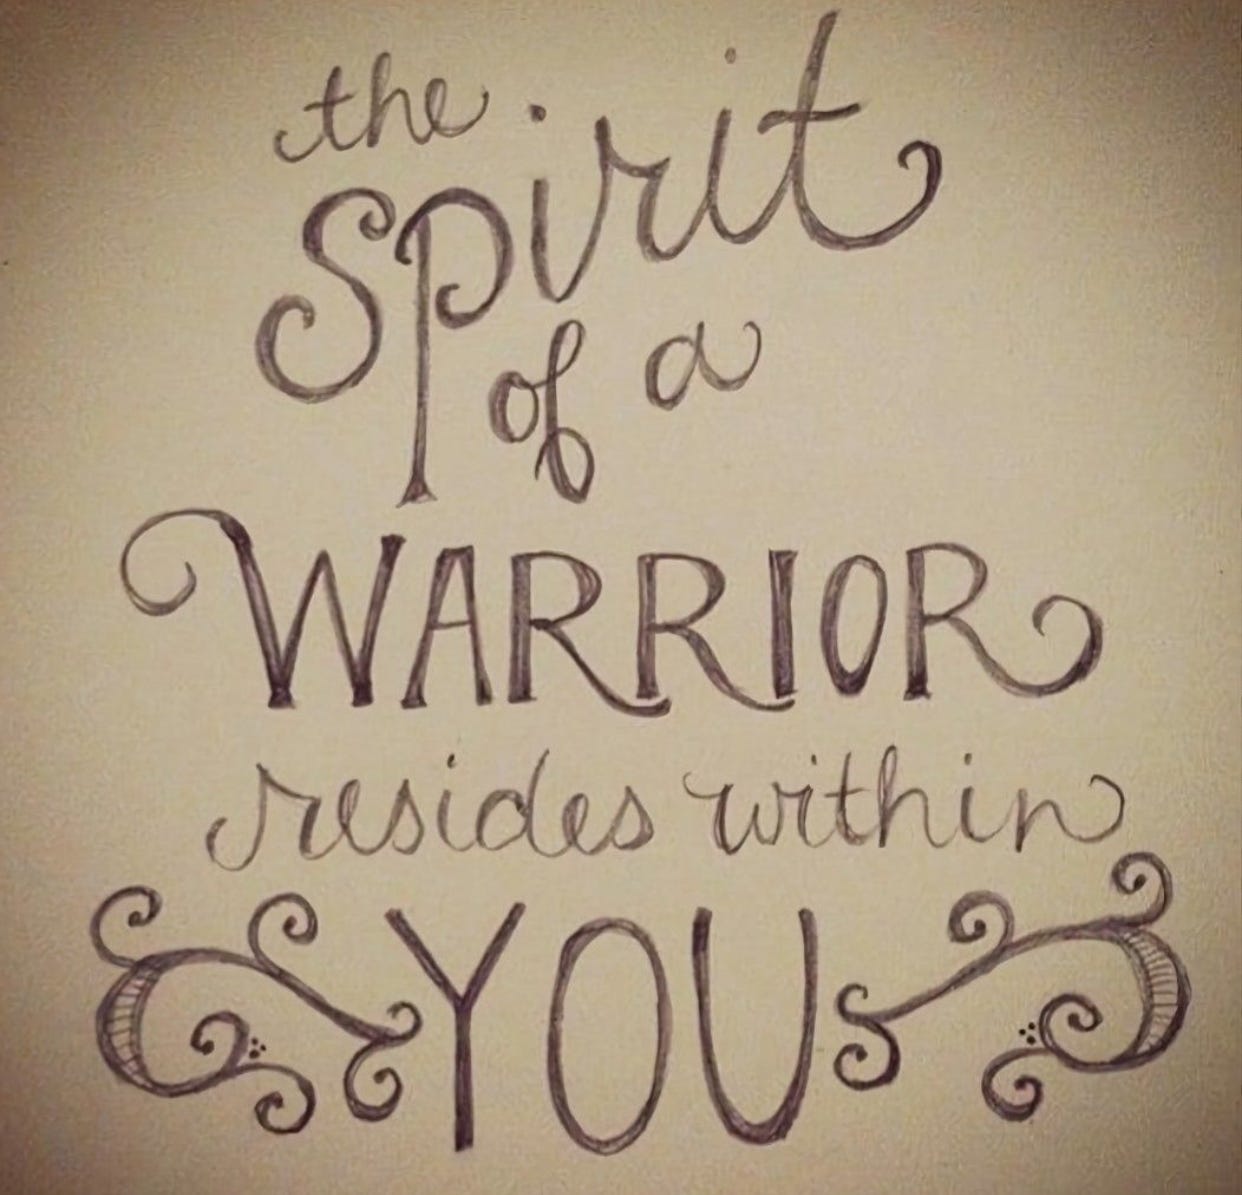 the
Spirit
of a
WARRIOR
resides within
YOU